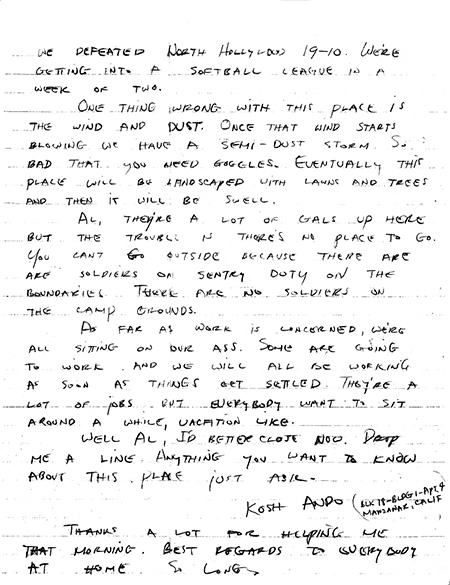 WE DEFEATED NORTH HOLLYWOOD 19-10. WE'RE
GETTING INTO A SOFTBALL LEAGUE IN A
WEEK OF TWO.
ONE THING WRONG WITH THIS PLACE IS
THE WIND AND DUST. ONCE THAT WIND STARTS
BLOWING WE HAVE A SEMI-DUST STORM. SO
BAD THAT YOU NEED GOGGLES. EVENTUALLY THIS
PLACE WILL BE LANDSCAPED WITH LAWNS AND TREES
AND THEN IT WILL BE SWELL.
AL, THEY'RE A LOT OF GALS UP HERE
BUT THE TROUBLE IS THERE'S NO PLACE TO GO.
YOU CANT GO OUTSIDE BECAUSE THERE ARE
ARE SOLDIERS ON SENTRY DUTY ON THE
BOUNDARIES. THERE ARE NO SOLDIERS ON
THE CAMP GROUNDS.
AS FAR AS WORK IS CONCERNED, WE'RE
ALL SITTING ON OUR ASS. SOME ARE GOING
TO WORK. AND WE WILL ALL BE WORKING
AS SOON AS THINGS GET SETTLED. THEY'RE A
LOT OF JOBS BUT EVERYBODY WANT TO SIT
AROUND A WHILE, VACATION LIKE.
WELL AL, I'D BETTER CLOSE NOW. DROP
ME A LINE. ANYTHING YOU WANT TO KNOW
ABOUT THIS PLACE JUST ASK.
KOSH ANDO (BLK 19-BLDG 1-APT 4
MANZANAR, CALIF
THANKS A LOT FOR HELPING ME
THAT MORNING. BEST REGARDS TO EVERYBODY
AT HOME SO LONG